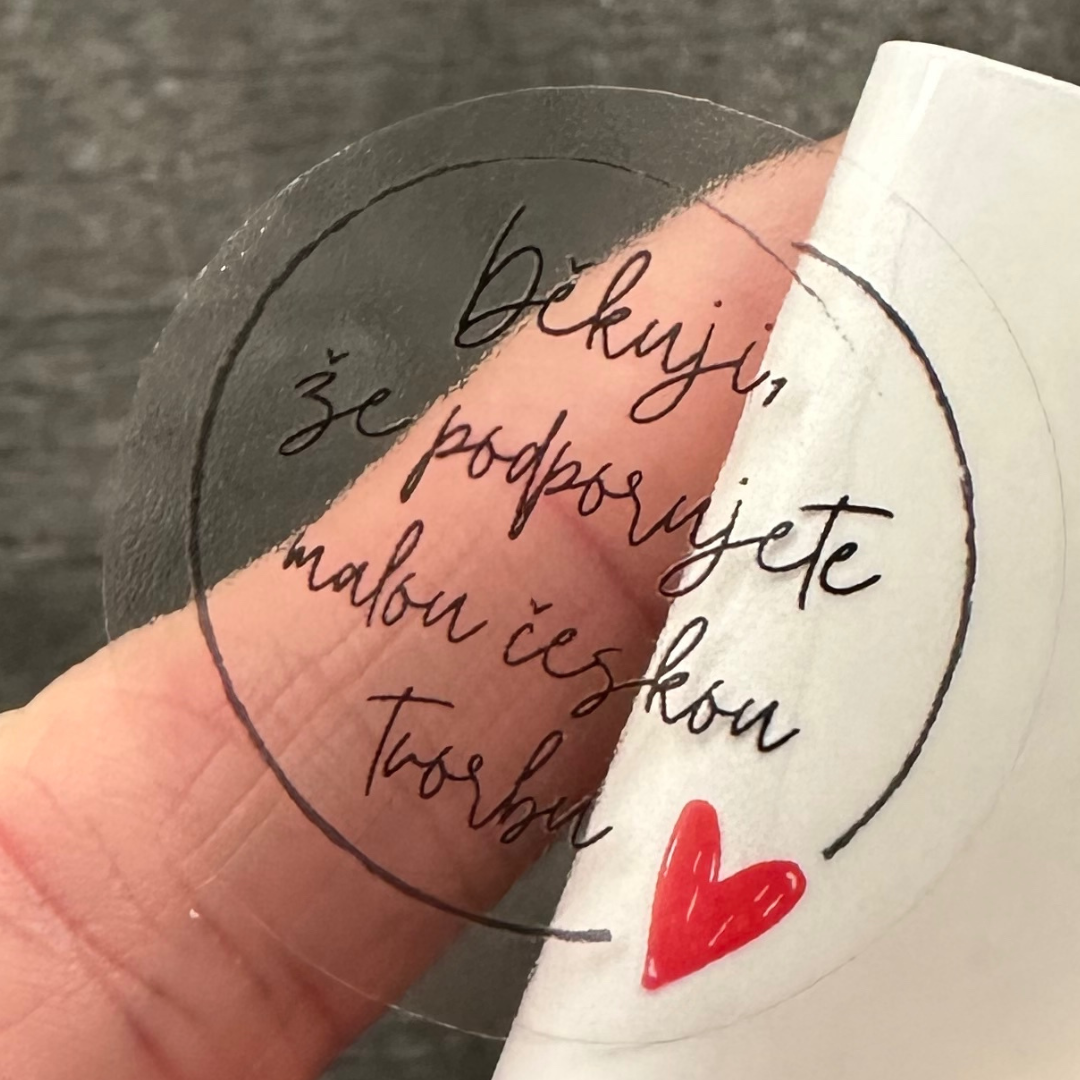 Děkuji,
že podporujete
malou českou
tvorbu